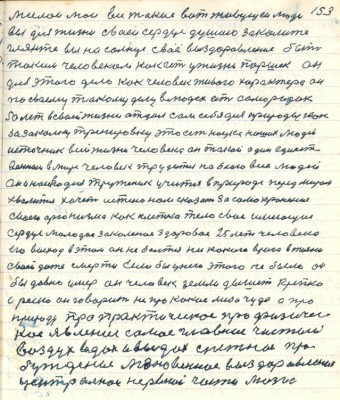 153
милое мои вы такие вот живущие люди
вы для жизни своей сердце душою закалите
гляньте вы на солнце своё выздоровление
такими человеком он
для этого дело как человек живого характера он
по своему такому делу в людях самородок
болет всей жизни отдал сам себя для природы как
за закалку тренировку это есть наука наших людей
источник всей жизни человека он такой один единст
венный в мире человек трудится на благо всех людей
он труженик учится в природе перед миром
хвалится хочет истено нам сказать за самохранения
своего организма как клетка тело своё имеющие
сердце молодое закаленое здоровое 25 лет человека
его выход в этом он не боится ни какого врага в жизни
своей даже смерти если бы у него этого не было он
бы давно умер он человек земли дышит крепко
с резко он говорить не про какое либо чудо а про
природу про практическое про физичес
кое явление самое главное чистый
воздух вдох и выдох снежное про
буждение мгновенное выздоровление
центральной нервной части мозга